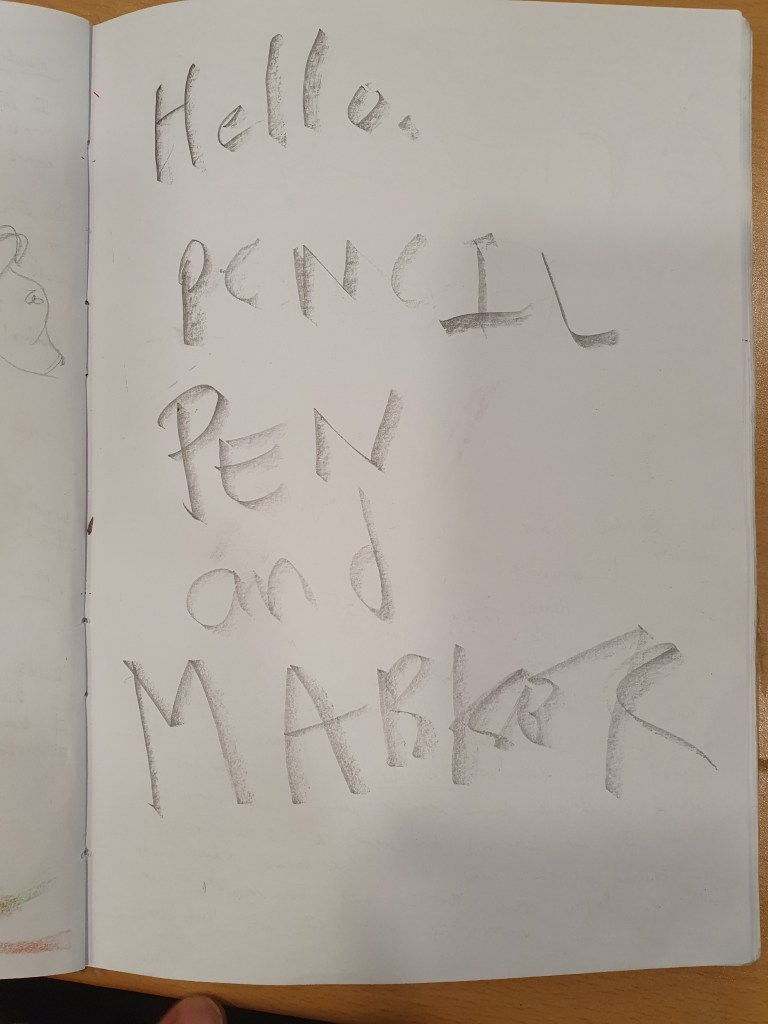 Hello.
PENCIL
PEN
and
MARKER